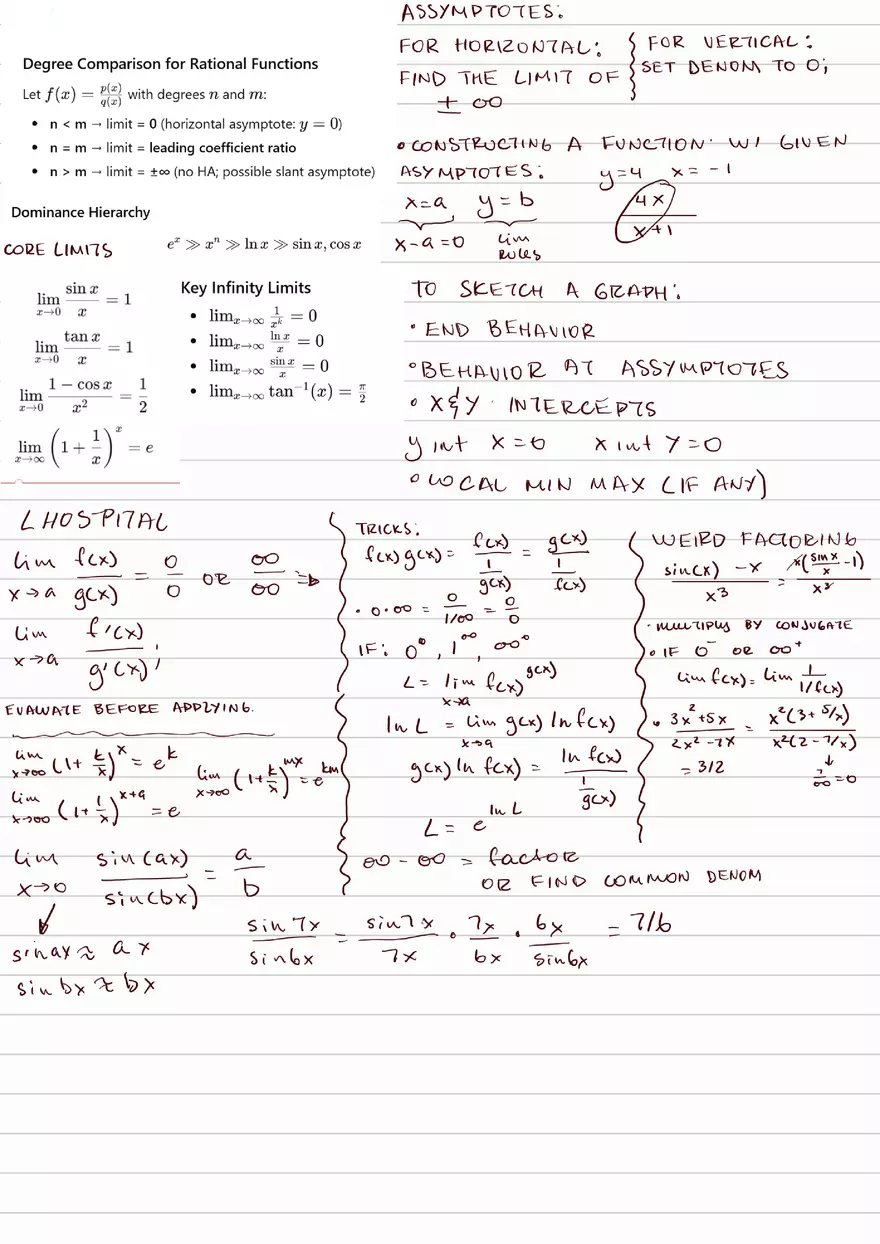 Degree Comparison for Rational Functions
Let f(x) = p(x)/q(x) with degrees n and m:
• n < m → limit = 0 (horizontal asymptote: y = 0)
• n = m → limit = leading coefficient ratio
• n > m → limit = ±∞ (no HA; possible slant asymptote)
Dominance Hierarchy
e^x ≫ x^n ≫ ln x ≫ sin x, cos x
CORE LIMITS
lim x→0 sin x / x = 1
lim x→0 tan x / x = 1
lim x→0 (1 − cos x) / x² = 1/2
lim x→∞ (1 + 1/x)^x = e
Key Infinity Limits
• lim x→∞ 1/x^k = 0
• lim x→∞ ln x / x = 0
• lim x→∞ sin x / x = 0
• lim x→∞ tan⁻¹(x) = π/2
ASSYMPTOTES:
FOR HORIZONTAL:
FIND THE LIMIT OF
± ∞
FOR VERTICAL:
SET DENOM TO 0;
• CONSTRUCTING A FUNCTION W/ GIVEN
ASYMPTOTES:
y=4 x=-1
x=a y=b
x-a=0 lim RULES
4x / x+1
TO SKETCH A GRAPH:
• END BEHAVIOR
• BEHAVIOR AT ASSYMPTOTES
• X & Y INTERCEPTS
y int x=0 x int y=0
• LOCAL MIN MAX (IF ANY)
LHOSPITAL
lim x→a f(x)/g(x) = 0/0 OR ∞/∞ ⇒
lim x→a f'(x)/g'(x);
EVALUATE BEFORE APPLYING.
lim x→∞ (1+k/x)^x = e^k
lim x→∞ (1+k/x)^mx = e^km
lim x→∞ (1+1/x)^x+a = e
lim x→0 sin(ax)/sin(bx) = a/b
sin ax ≈ ax
sin bx ≈ bx
TRICKS:
f(x)g(x) = f(x)/(1/g(x)) = g(x)/(1/f(x))
• 0·∞ = 0/(1/∞) = 0/0
IF: 0^0, 1^∞, ∞^0
L = lim x→a f(x)^g(x)
ln L = lim x→a g(x) ln f(x)
g(x) ln f(x) = ln f(x)/(1/g(x))
L = e^ln L
∞ - ∞ = factor
OR FIND COMMON DENOM
sin 7x/sin 6x = sin 7x/7x • 7x/6x • 6x/sin 6x = 7/6
WEIRD FACTORING
(sin(x) - x)/x³ = x(sin x/x - 1)/x³
• MULTIPLY BY CONJUGATE
• IF 0⁻ OR ∞⁺
lim f(x) = lim 1/(1/f(x))
• (3x²+5x)/(2x²-7x) = x²(3+5/x)/x²(2-7/x)
= 3/2
7/∞ = 0